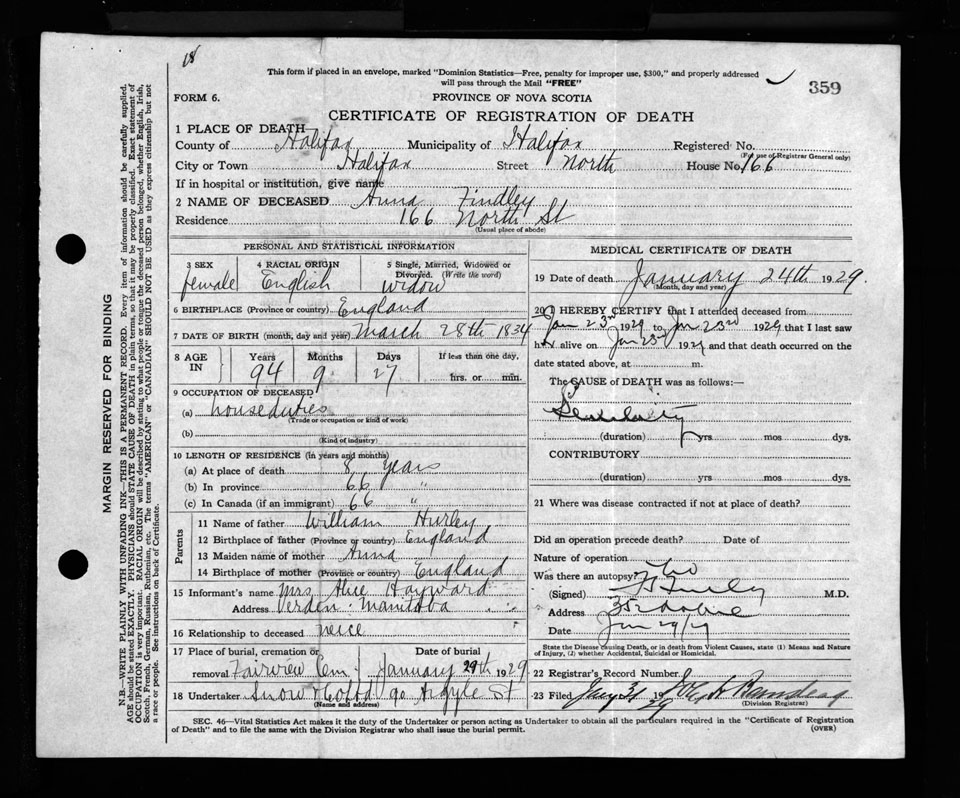 18
This form if placed in an envelope, marked "Dominion Statistics—Free, penalty for improper use, $300," and properly addressed
will pass through the Mail "FREE"
359
FORM 6.
PROVINCE OF NOVA SCOTIA
CERTIFICATE OF REGISTRATION OF DEATH
1 PLACE OF DEATH
County of Halifax Municipality of Halifax Registered No.
(For use of Registrar General only)
City or Town Halifax Street North House No. 166
If in hospital or institution, give name
2 NAME OF DECEASED Anna Findley
Residence 166 North St
(Usual place of abode)
PERSONAL AND STATISTICAL INFORMATION
3 SEX 4 RACIAL ORIGIN 5 Single, Married, Widowed or
Divorced. (Write the word)
female English widow
6 BIRTHPLACE (Province or country) England
7 DATE OF BIRTH (month, day and year) March 28th 1834
8 AGE IN Years Months Days If less than one day,
94 9 27 hrs. or min.
9 OCCUPATION OF DECEASED
(a) houseduties
(Trade or occupation or kind of work)
(b)
(Kind of industry)
10 LENGTH OF RESIDENCE (in years and months)
(a) At place of death 8 years
(b) In province 66 "
(c) In Canada (if an immigrant) 66 "
Parents
11 Name of father William Hurley
12 Birthplace of father (Province or country) England
13 Maiden name of mother Anna
14 Birthplace of mother (Province or country) England
15 Informant's name Mrs Alice Hayward
Address Verden Manitoba
16 Relationship to deceased neice
17 Place of burial, cremation or removal Date of burial
Fairview Cem. January 29th 1929
18 Undertaker Snow & Co Ltd 90 Argyle St
(Name and address)
MEDICAL CERTIFICATE OF DEATH
19 Date of death January 24th 1929.
(Month, day and year)
20 I HEREBY CERTIFY that I attended deceased from
Jan 23rd 1929 to Jan 23rd 1929 that I last saw
h alive on Jan 23rd 1929 and that death occurred on the
date stated above, at m.
The CAUSE OF DEATH was as follows:—
(duration) yrs mos dys.
CONTRIBUTORY
(duration) yrs. mos dys.
21 Where was disease contracted if not at place of death?
Did an operation precede death? Date of
Nature of operation
Was there an autopsy? No
(Signed) M.D.
Address
Date Jan 29/29
State the Disease causing Death, or in death from Violent Causes, state (1) Means and Nature
of Injury, (2) whether Accidental, Suicidal or Homicidal.
22 Registrar's Record Number
23 Filed Jany 31 1929
(Division Registrar)
SEC. 46—Vital Statistics Act makes it the duty of the Undertaker or person acting as Undertaker to obtain all the particulars required in the "Certificate of Registration
of Death" and to file the same with the Division Registrar who shall issue the burial permit.
(OVER)
MARGIN RESERVED FOR BINDING
N.B.—WRITE PLAINLY WITH UNFADING INK—THIS IS A PERMANENT RECORD. Every item of information should be carefully supplied.
AGE should be stated EXACTLY. PHYSICIANS should STATE CAUSE OF DEATH in plain terms, so that it may be properly classified. Exact statement of
OCCUPATION is very important. RACIAL ORIGIN will be described by stating to what people or tongue the deceased person belonged, whether English, Irish,
Scotch, French, German, Russian, Ruthenian, etc. The terms "AMERICAN" or "CANADIAN" SHOULD NOT BE USED as they express citizenship but not
a race or people. See instructions on back of Certificate.